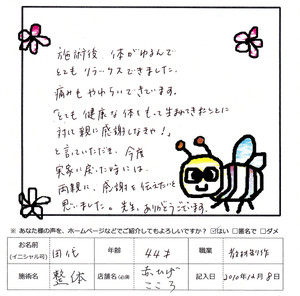 施術後、体がゆるんで
とてもリラックスできました。
痛みもやわらいできています。
「とても健康な体をもって生まれてきたことに
対して親に感謝しなきゃ!」
と言っていただき、今度
実家に戻った時には
両親に、感謝を伝えたいと
思いました。先生、ありがとうございます。
※ あなた様の声を、ホームページなどでご紹介してもよろしいですか? ☑はい □匿名で □ダメ
お名前 (イニシャル可) 田代 年齢 44才 職業
施術名 整体 店舗名(必須) 赤ひげ こころ 記入日 2010年12月8日